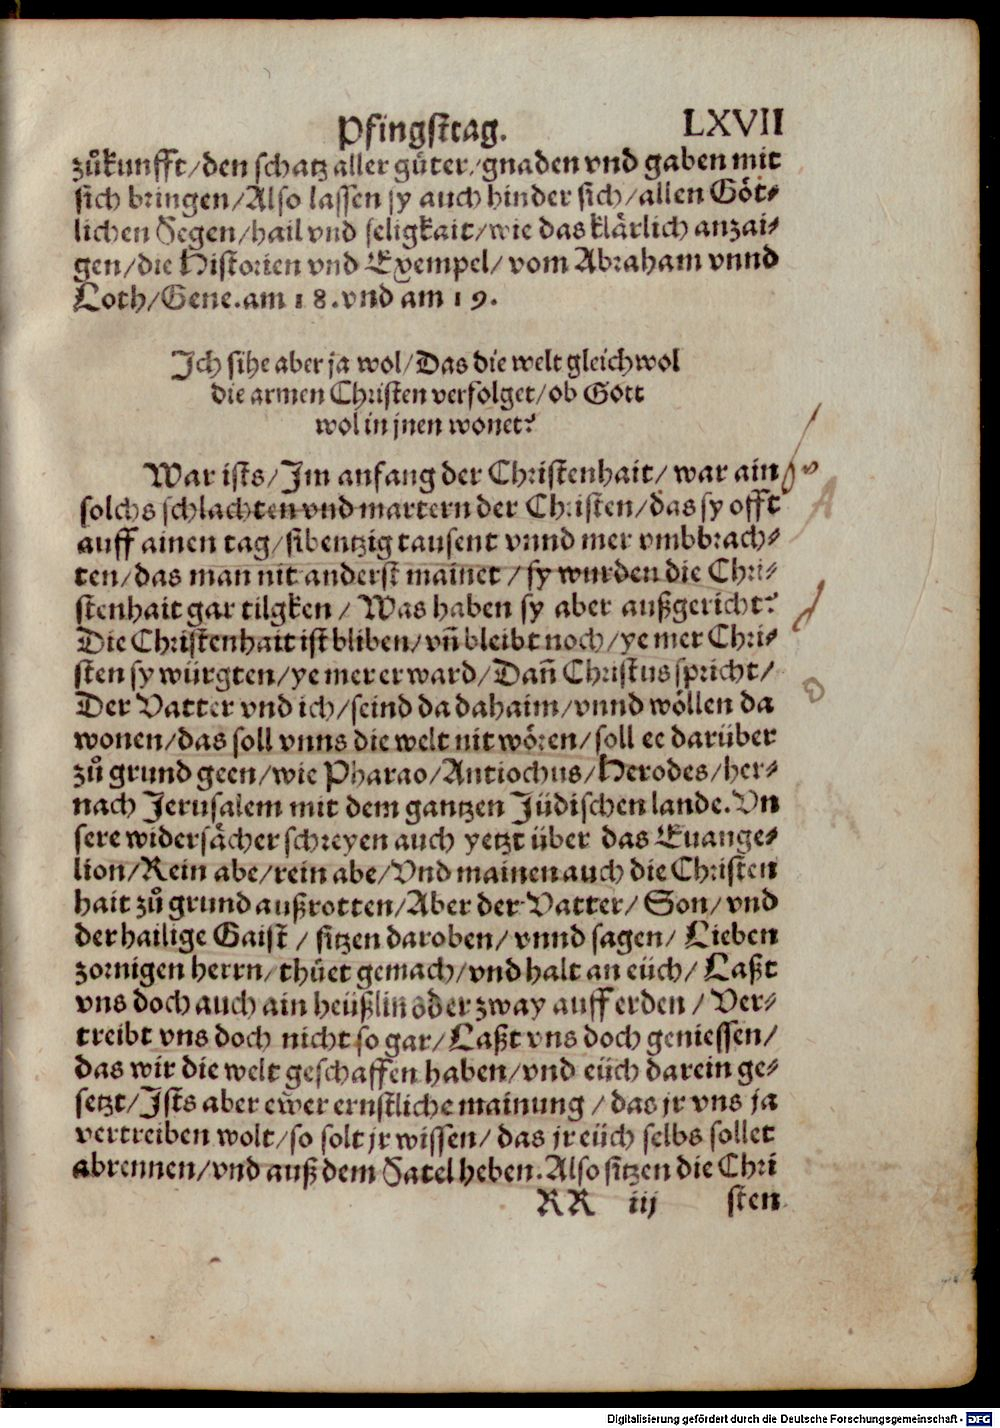 Pfingsttag. LXVII
zůkunfft/den schatz aller gůter/gnaden vnd gaben mit
sich bringen/Also lassen sy auch hinder sich/allen Göt-
lichen Segen/hail vnd seligkait/wie das klärlich anzai-
gen/die Historien vnd Exempel/vom Abraham vnnd
Loth/Gene.am 18.vnd am 19.
Ich sihe aber ja wol/Das die welt gleichwol
die armen Christen verfolget/ob Gott
wol in jnen wonet?
War ists/Im anfang der Christenhait/war ain
solchs schlachten vnd martern der Christen/das sy offt
auff ainen tag/sibentzig tausent vnnd mer vmbbrach-
ten/das man nit anderst mainet/sy wurden die Chri-
stenhait gar tilgken/Was haben sy aber außgericht?
Die Christenhait ist bliben/vñ bleibt noch/ye mer Chri-
sten sy würgten/ye mer er ward/Dañ Christus spricht/
Der Vatter vnd ich/seind da dahaim/vnnd wöllen da
wonen/das soll vnns die welt nit wören/soll ee darüber
zů grund geen/wie Pharao/Antiochus/Herodes/her-
nach Jerusalem mit dem gantzen Jüdischen lande.Vn
sere widersächer schreyen auch yetzt über das Euange-
lion/Rein abe/rein abe/Vnd mainen auch die Christen
hait zů grund außrotten/Aber der Vatter/Son/vnd
der hailige Gaist/sitzen daroben/vnnd sagen/Lieben
zornigen herrn/thüet gemach/vnd halt an eüch/Laßt
vns doch auch ain heüßlin oder zway auff erden/Ver-
treibt vns doch nicht so gar/Laßt vns doch geniessen/
das wir die welt geschaffen haben/vnd eüch darein ge-
setzt/Ists aber ew̃er ernstliche mainung/das jr vns ja
vertreiben wolt/so solt jr wissen/das jr eüch selbs sollet
abrennen/vnd auß dem Satel heben.Also sitzen die Chri
RR iij sten
Digitalisierung gefördert durch die Deutsche Forschungsgemeinschaft - DFG